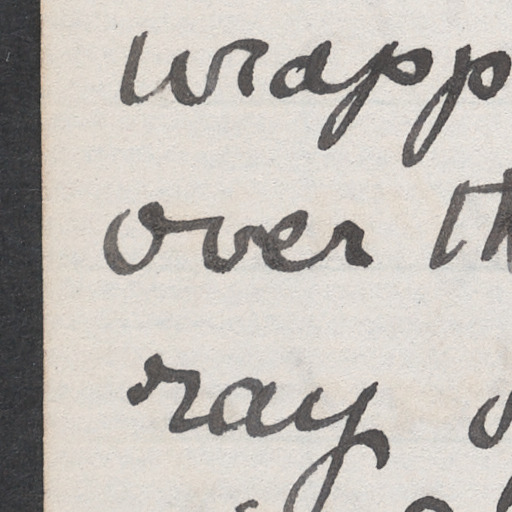 wrapp
over th
ray